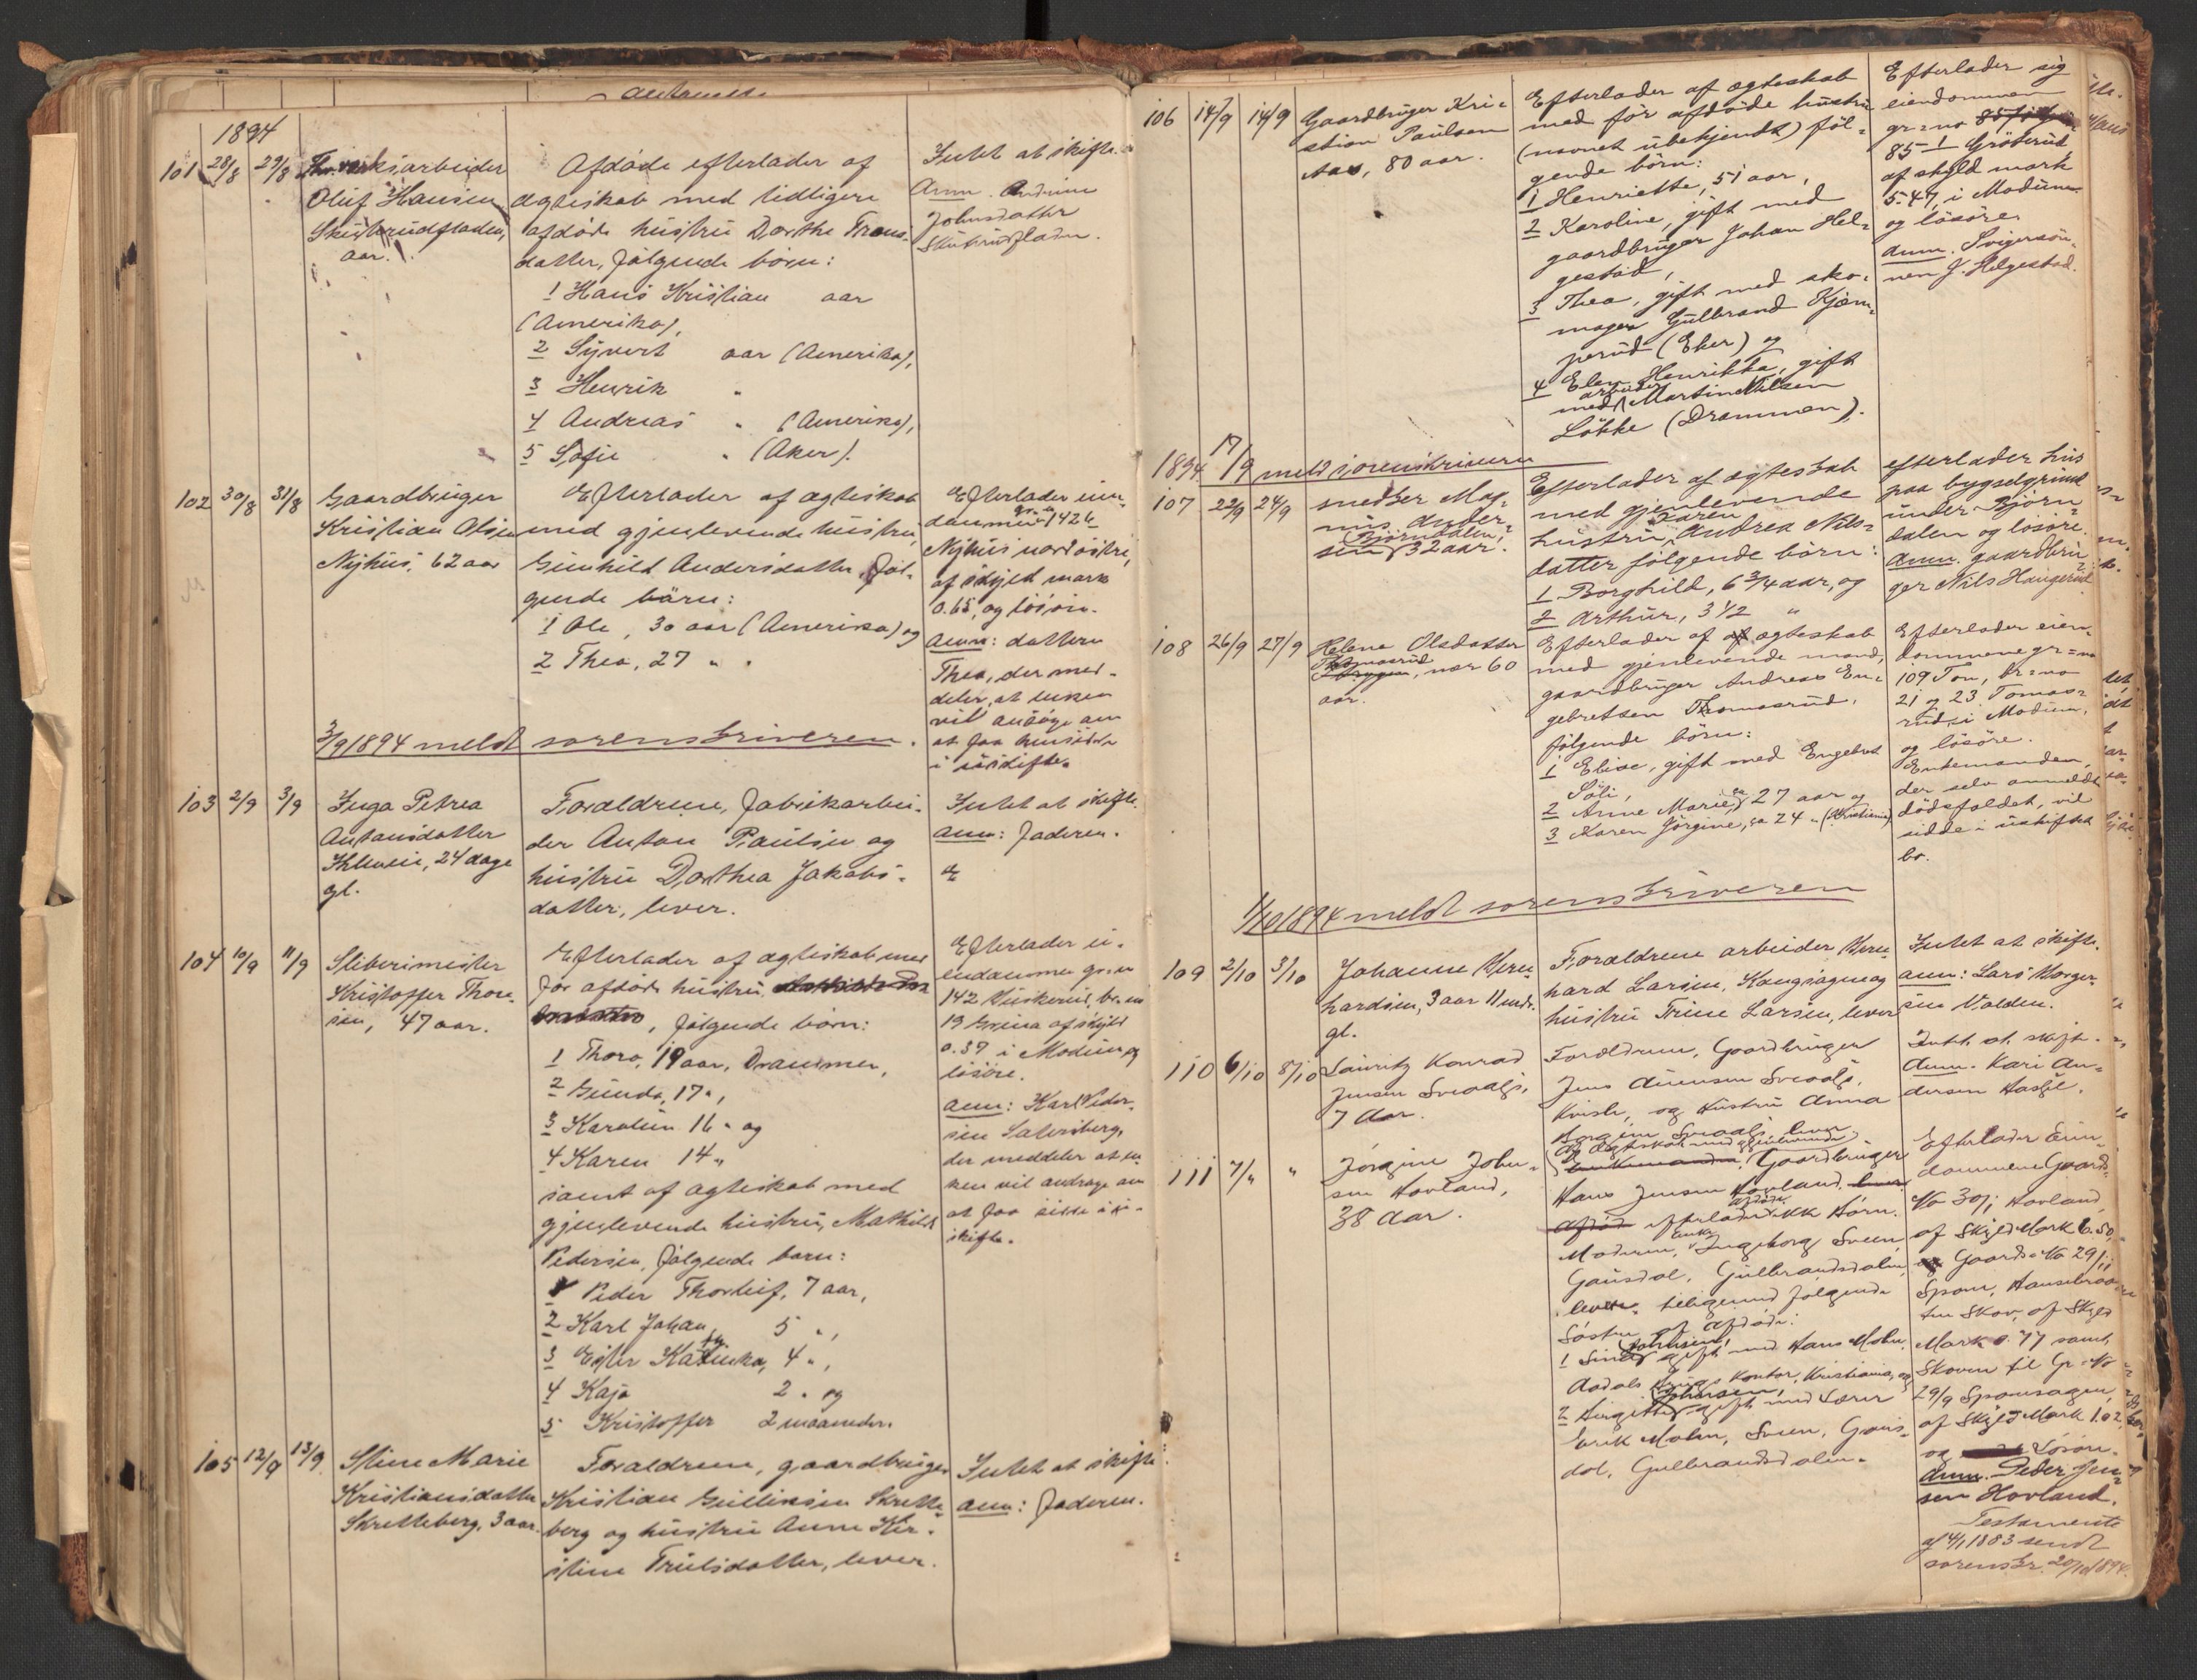 1894
101 28/8 29/8
Træverksarbeider
Oluf Hansen
Skuterudfladen,
aar.
Afdøde efterlader af
ægteskab med tidligere
afdøde hustru Dorthe Frans-
datter, følgende børn:
1 Hans Kristian aar
(Amerika),
2 Syvert aar (Amerika),
3 Henrik "
4 Andreas " (Amerika),
5 Sofie " (Aker).
Intet at skifte.
Anm. Andrine
Johnsdatter
Skuterudfladen.
102 30/8 31/8
Gaardbruger
Kristian Olsen
Nyhus, 62 aar
Efterlader af ægteskab
med gjenlevende hustru,
Gunhild Andersdatter, føl-
gende børn:
1 Ole, 30 aar (Amerika) og
2 Thea, 27 " "
Efterlader eien-
dommen gr. n 142 6
Nyhus nordøstre,
af skyld mark
0.65, og løsøre.
Anm: datteren
Thea, der med-
deler, at enken
vil ansøge om
at faa hensidde
i uskifte.
3/9 1894 meldt sorenskriveren.
103 2/9 3/9
Inga Petrea
Antonsdatter
24 dage
gl.
Forældrene, fabrikarbei-
der Anton Paulsen og
hustru Dorthea Jakobs-
datter, lever.
Intet at skifte.
Anm: faderen.
104 10/9 11/9
Sliberimester
Kristoffer Thore-
sen, 47 aar.
Efterlader af ægteskab med
før afdøde hustru
, følgende børn:
1 Thora, 19 aar, Drammen,
2 Gunda, 17 ",
3 Karoline 16 " og
4 Karen 14 "
samt af ægteskab med
gjenlevende hustru, Mathilde
Pedersen, følgende børn:
1 Peder Thorleif, 7 aar,
2 Karl Johan, 5 ",
3 Ester Katinka, 4 ",
4 Kaja 2 " og
5 Kristoffer 2 maaneder.
Efterlader ei-
endommen gr. n
142 br. n
19 Grina af skyld
0.39 i Modum og
løsøre.
Anm: Karl Peder-
sen Satersberg,
der meddeler at en-
ken vil andrage om
at faa sidde i u-
skifte.
105 12/9 13/9
Stine Marie
Kristiansdatter
Skretteberg, 3 aar.
Forældrene, gaardbruger
Kristian Gulliksen Skrette-
berg og hustru Anne Kir-
stine Trulsdatter, lever.
Intet at skifte
Anm: faderen.
106 14/9 14/9
Gaardbruger Kri-
stian Paulsen
Aas, 80 aar.
Efterlader af ægteskab
med før afdøde hustru
(navnet ubekjendt) føl-
gende børn:
1 Henriette, 51 aar,
2 Karoline, gift med
gaardbruger Johan Hel-
gestad,
3 Thea, gift med sko-
mager Gulbrand Kjem-
perud (Eker) og
4 Elen Henrikka, gift
med arbeider Martin Nilsen
Løkke (Drammen).
Efterlader sig
eiendommen
gr = no
85-1 Grøterud
af skyld mark
5.47, i Modum
og løsøre.
Anm. Svigersøn-
nen J. Helgestad.
1894 17/9 meldt sorenskriveren
107 22/9 24/9
Snedker Mag-
nus Ander-
sen Bjørndalen, 32 aar.
Efterlader af ægteskab
med gjenlevende
hustru Karen Andrea Nils-
datter følgende børn:
1 Borghild, 6 3/4 aar, og
2 Arthur, 3 1/2 "
efterlader hus
paa bygselgrund
under Bjørn-
dalen og løsøre.
Anm. gaardbru-
ger Nils Haugerud
108 26/9 27/9
Helene Olsdatter
Thomasrud, nær 60
aar.
Efterlader af ægteskab
med gjenlevende mand,
gaardbruger Andreas En-
gebretsen Thomasrud,
følgende børn:
1 Elise, gift med Engebret
Søli,
2 Anne Marie, ca 27 aar og
3 Karen Jørgine, ca 24 " (Kristiania)
Efterlader eien-
dommene gr = no
109 Ton, br = no
21 og 23 Tomas-
rud, i Modum,
og løsøre.
Enkemanden,
der selv anmeldte
dødsfaldet, vil
sidde i uskiftet
bo.
1/10 1894 meldt sorenskriveren
109 2/10 3/10
Johanne Wern-
hardsen, 3 aar 11 mdr.
gl.
Forældrene arbeider Wern-
hard Larsen, Kongsagen og
hustru Trine Larsen, lever
Intet at skifte.
Anm: Lars Borger-
sen Volden.
110 6/10 8/10
Lauritz Konrad
Jensen Svaals,
7 Aar.
Forældrene, Gaardbruger
Jens Svaals,
og Hustru Anna
Svaals, lever
Intet at skift-
Anm. Kari An-
dersen
111 7/" "
Jørgine John-
sen Hovland,
38 Aar.
Af Ægteskab med gjenlevende
Gaardbruger
Hans Jensen Hovland,
afdøde efterlader ikk Børn.
Moderen, Enke Ingeborg Sveen,
Gausdal, Gulbrandsdalen,
lever, tilligemed følgende
Søstre af Afdøde:
1 Sina Johnsen, gift med Hans Molm,
Aadals Brugs Kontor, Kristiania, og
2 Birgitte Johnsen, gift med Lærer
Erik Molm, Sveen, Gaus-
dal, Gulbrandsdalen.
Efterlader Eien-
dommene Gaards-
No 30/1 Hovland
af Skyld Mark 6.50,
Gaards No 29/11
Spone,
Skov, af Skyld
Mark 0.77 samt
Skoven til Gr No
29/9 Sponesagen,
af Skyld Mark 1.02
og Løsøre.
Anm. Peder Jen-
sen Hovland.
Testamente
af 14/1 1883 sendt
sorenskr. 20/10 1894.